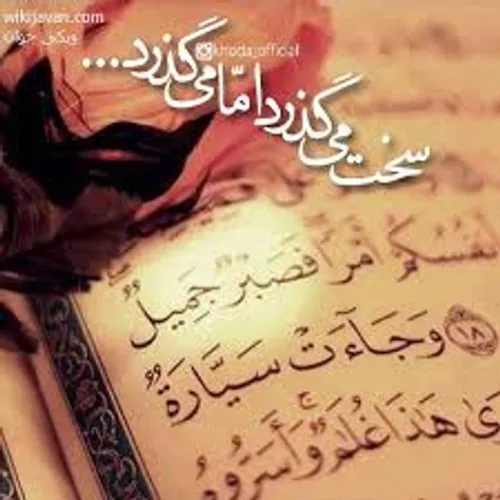 wikijavan.com
ویکی جوان
khoda_official
سخت می گذرد امّا می گذرد...
أَنفُسُكُمْ أَمْرًا فَصَبْرٌ جَمِيلٌ
١٨ وَجَآءَتْ سَيَّارَةٌ
هَٰذَا غُلَٰمٌ وَأَسَرُّوهُ